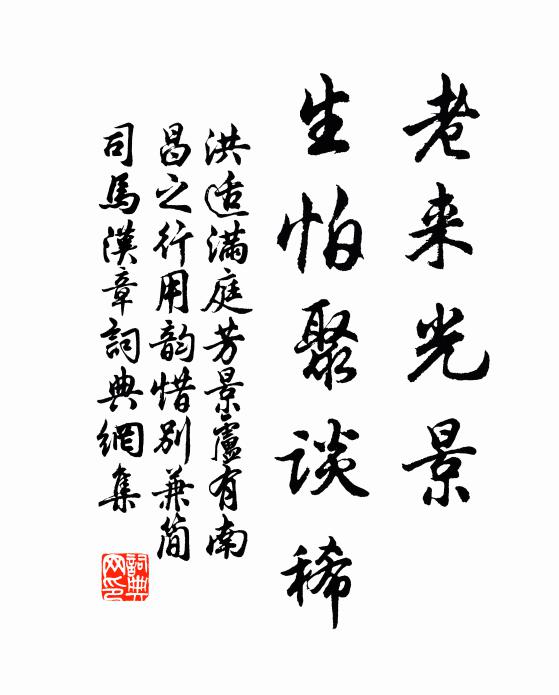 老来光景
生怕聚谈稀
洪适满庭芳景廬有南
昌之行用韵惜别兼简
司馬漢章詞典網集
詞典網印